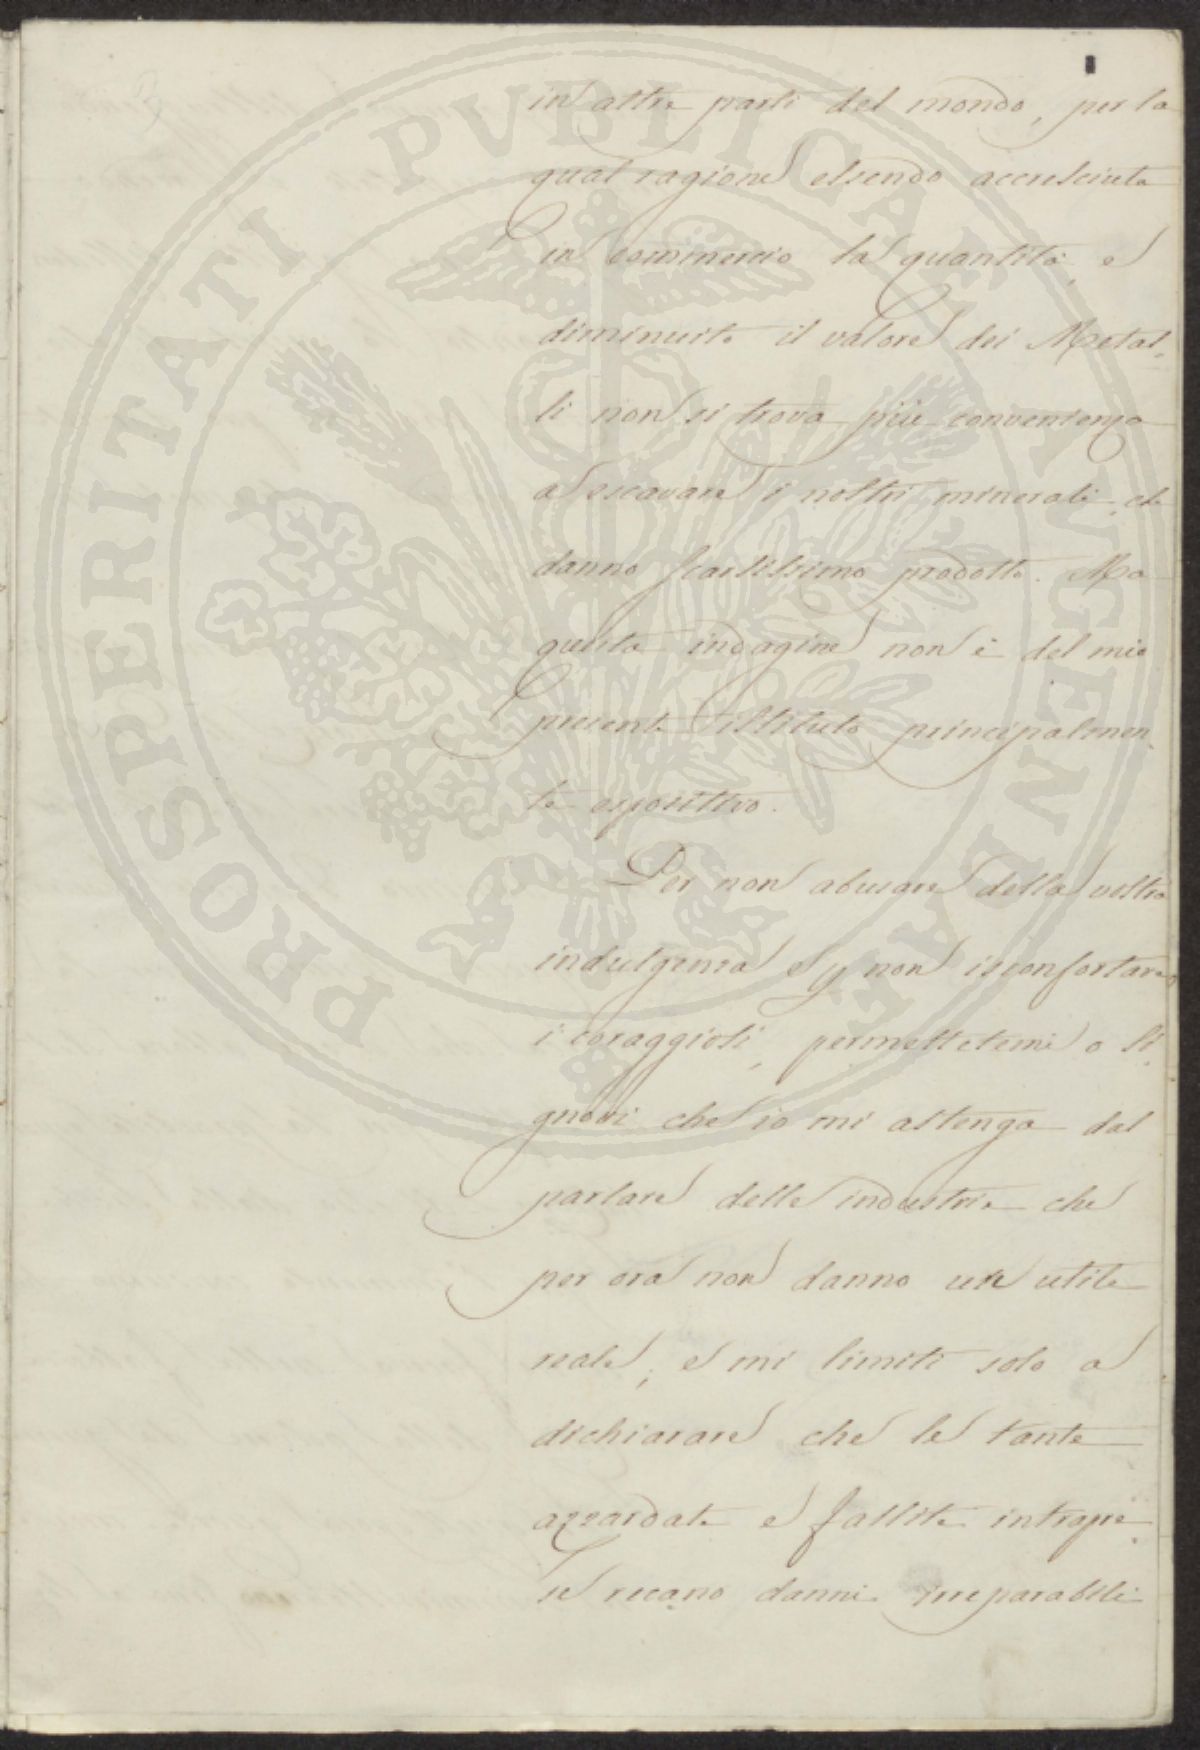 in altre parti del mondo, per la
qual ragione essendo accresciuta
in commercio la quantità, e
diminuito il valore dei Metal-
li non si trova più convenienza
a escavare i nostri minerali, che
danno scarsissimo prodotto. Ma
questa indagine non è del mio
presente istituto principalmen-
te espositivo.
Per non abusare della vostra
indulgenza e p non isconfortare
i coraggiosi, permettetemi o Si-
gnori che io mi astenga dal
parlare delle industrie che
per ora non danno un utile
reale, e mi limiti solo a
dichiarare che le tante
azzardate e fallite intrapre-
se recano danni irreparabili
PROSPERITATI PVBLICAE AVGENDAE